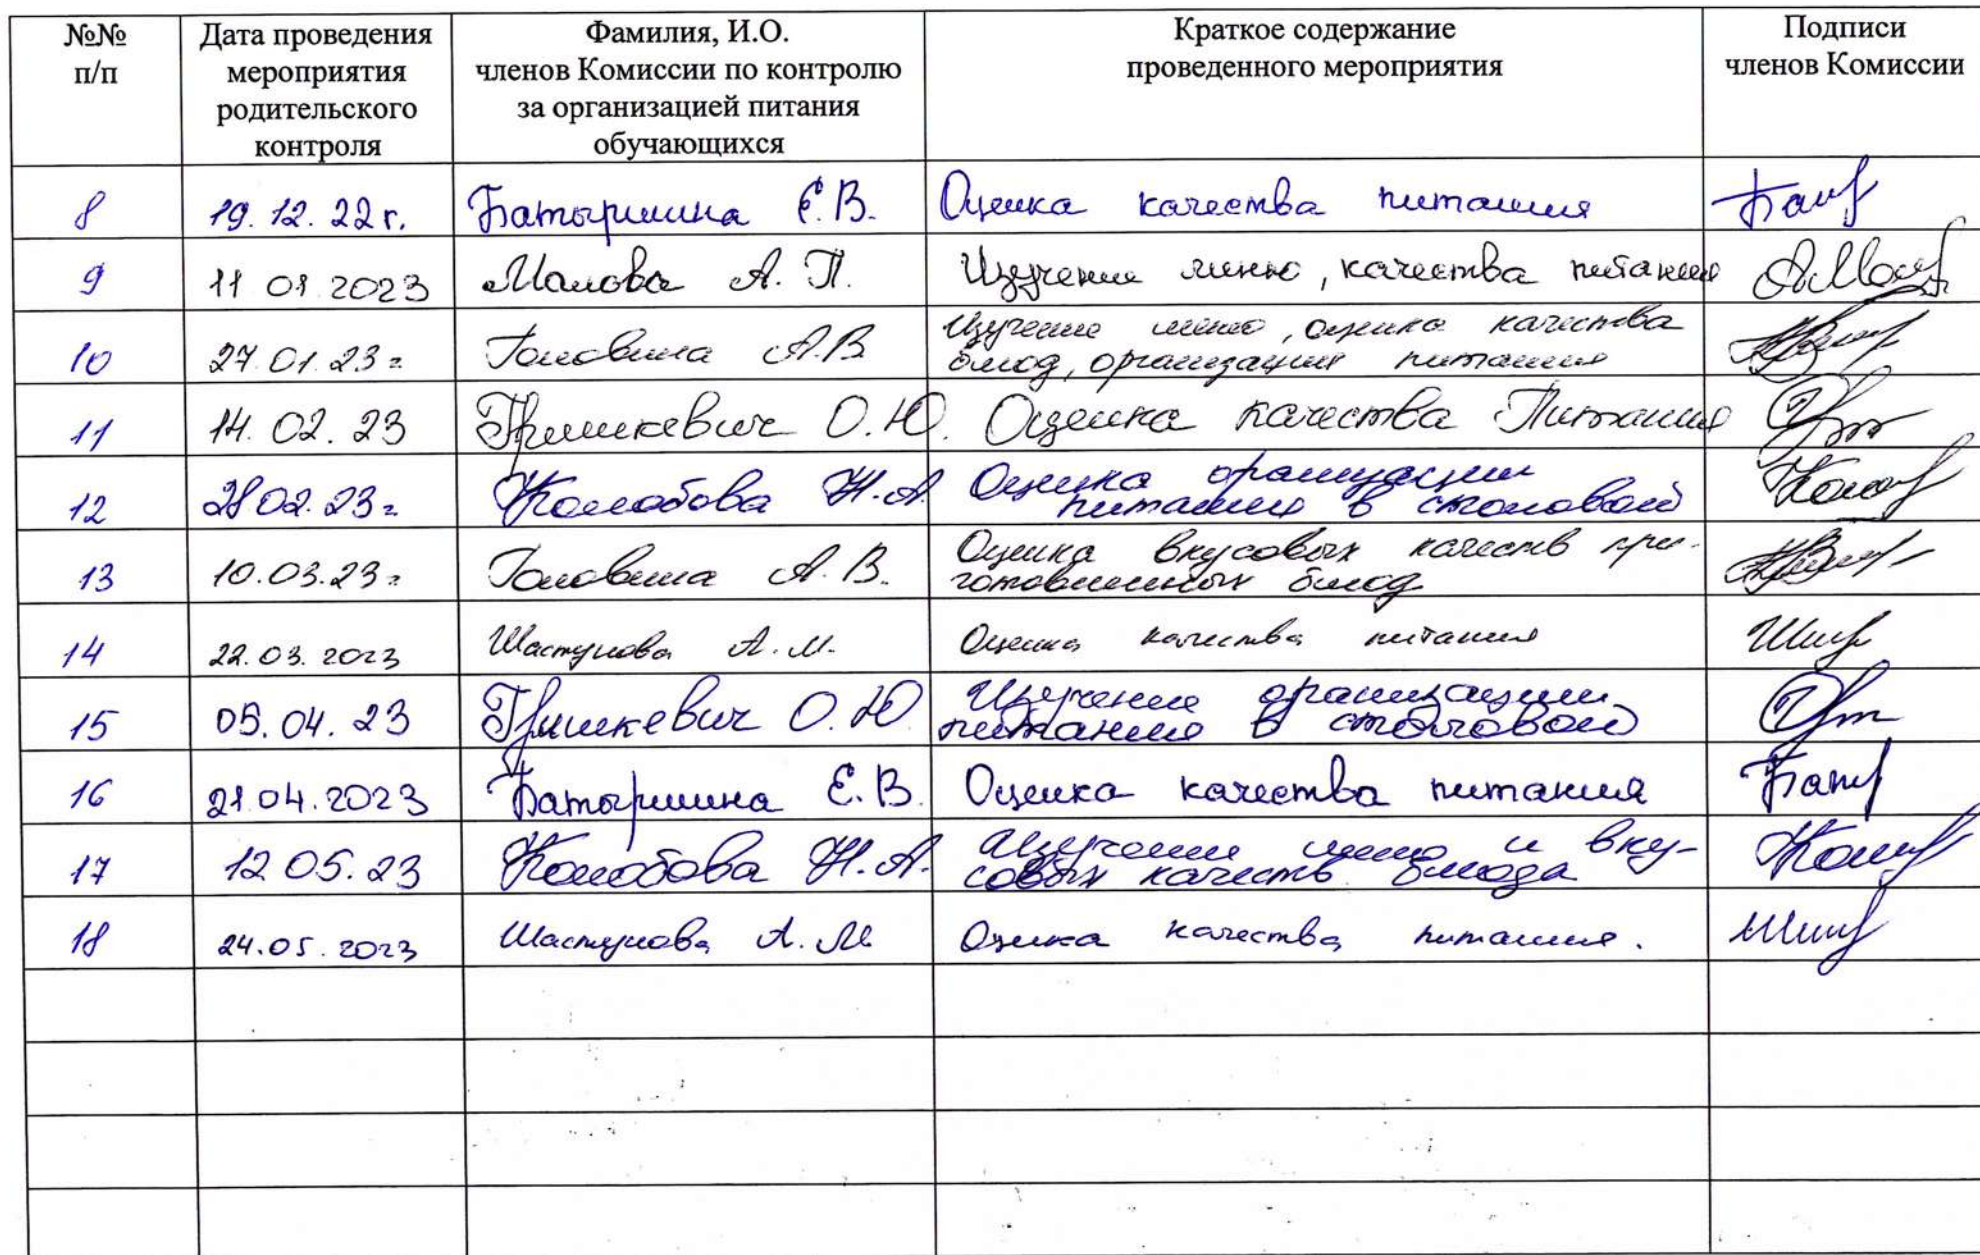 №№ п/п
Дата проведения мероприятия родительского контроля
Фамилия, И.О. членов Комиссии по контролю за организацией питания обучающихся
Краткое содержание проведенного мероприятия
Подписи членов Комиссии
8 19.12.22г. Батыршина Е.В. Оценка качества питания
9 11 01 2023 Малова А.П. Изучение меню, качества питания
10 27.01.23г Головина А.В Изучение меню, оценка качества
блюд, организация питания
11 14.02.23 Гришкевич О.Ю. Оценка качества Питания
12 28.02.23г Колобова Н.А. Оценка организации
питания в столовой
13 10.03.23г Головина А.В. Оценка вкусовых качеств при-
готовленных блюд
14 22.03.2023 Шастунова А.М. Оценка качества питания
15 05.04.23 Гришкевич О.Ю Изучение организации
питания в столовой
16 21.04.2023 Батыршина Е.В. Оценка качества питания
17 12 05.23 Колобова Н.А. Изучение меню и вку-
совых качеств блюда
18 24.05.2023 Шастунова А.М Оценка качества питания.